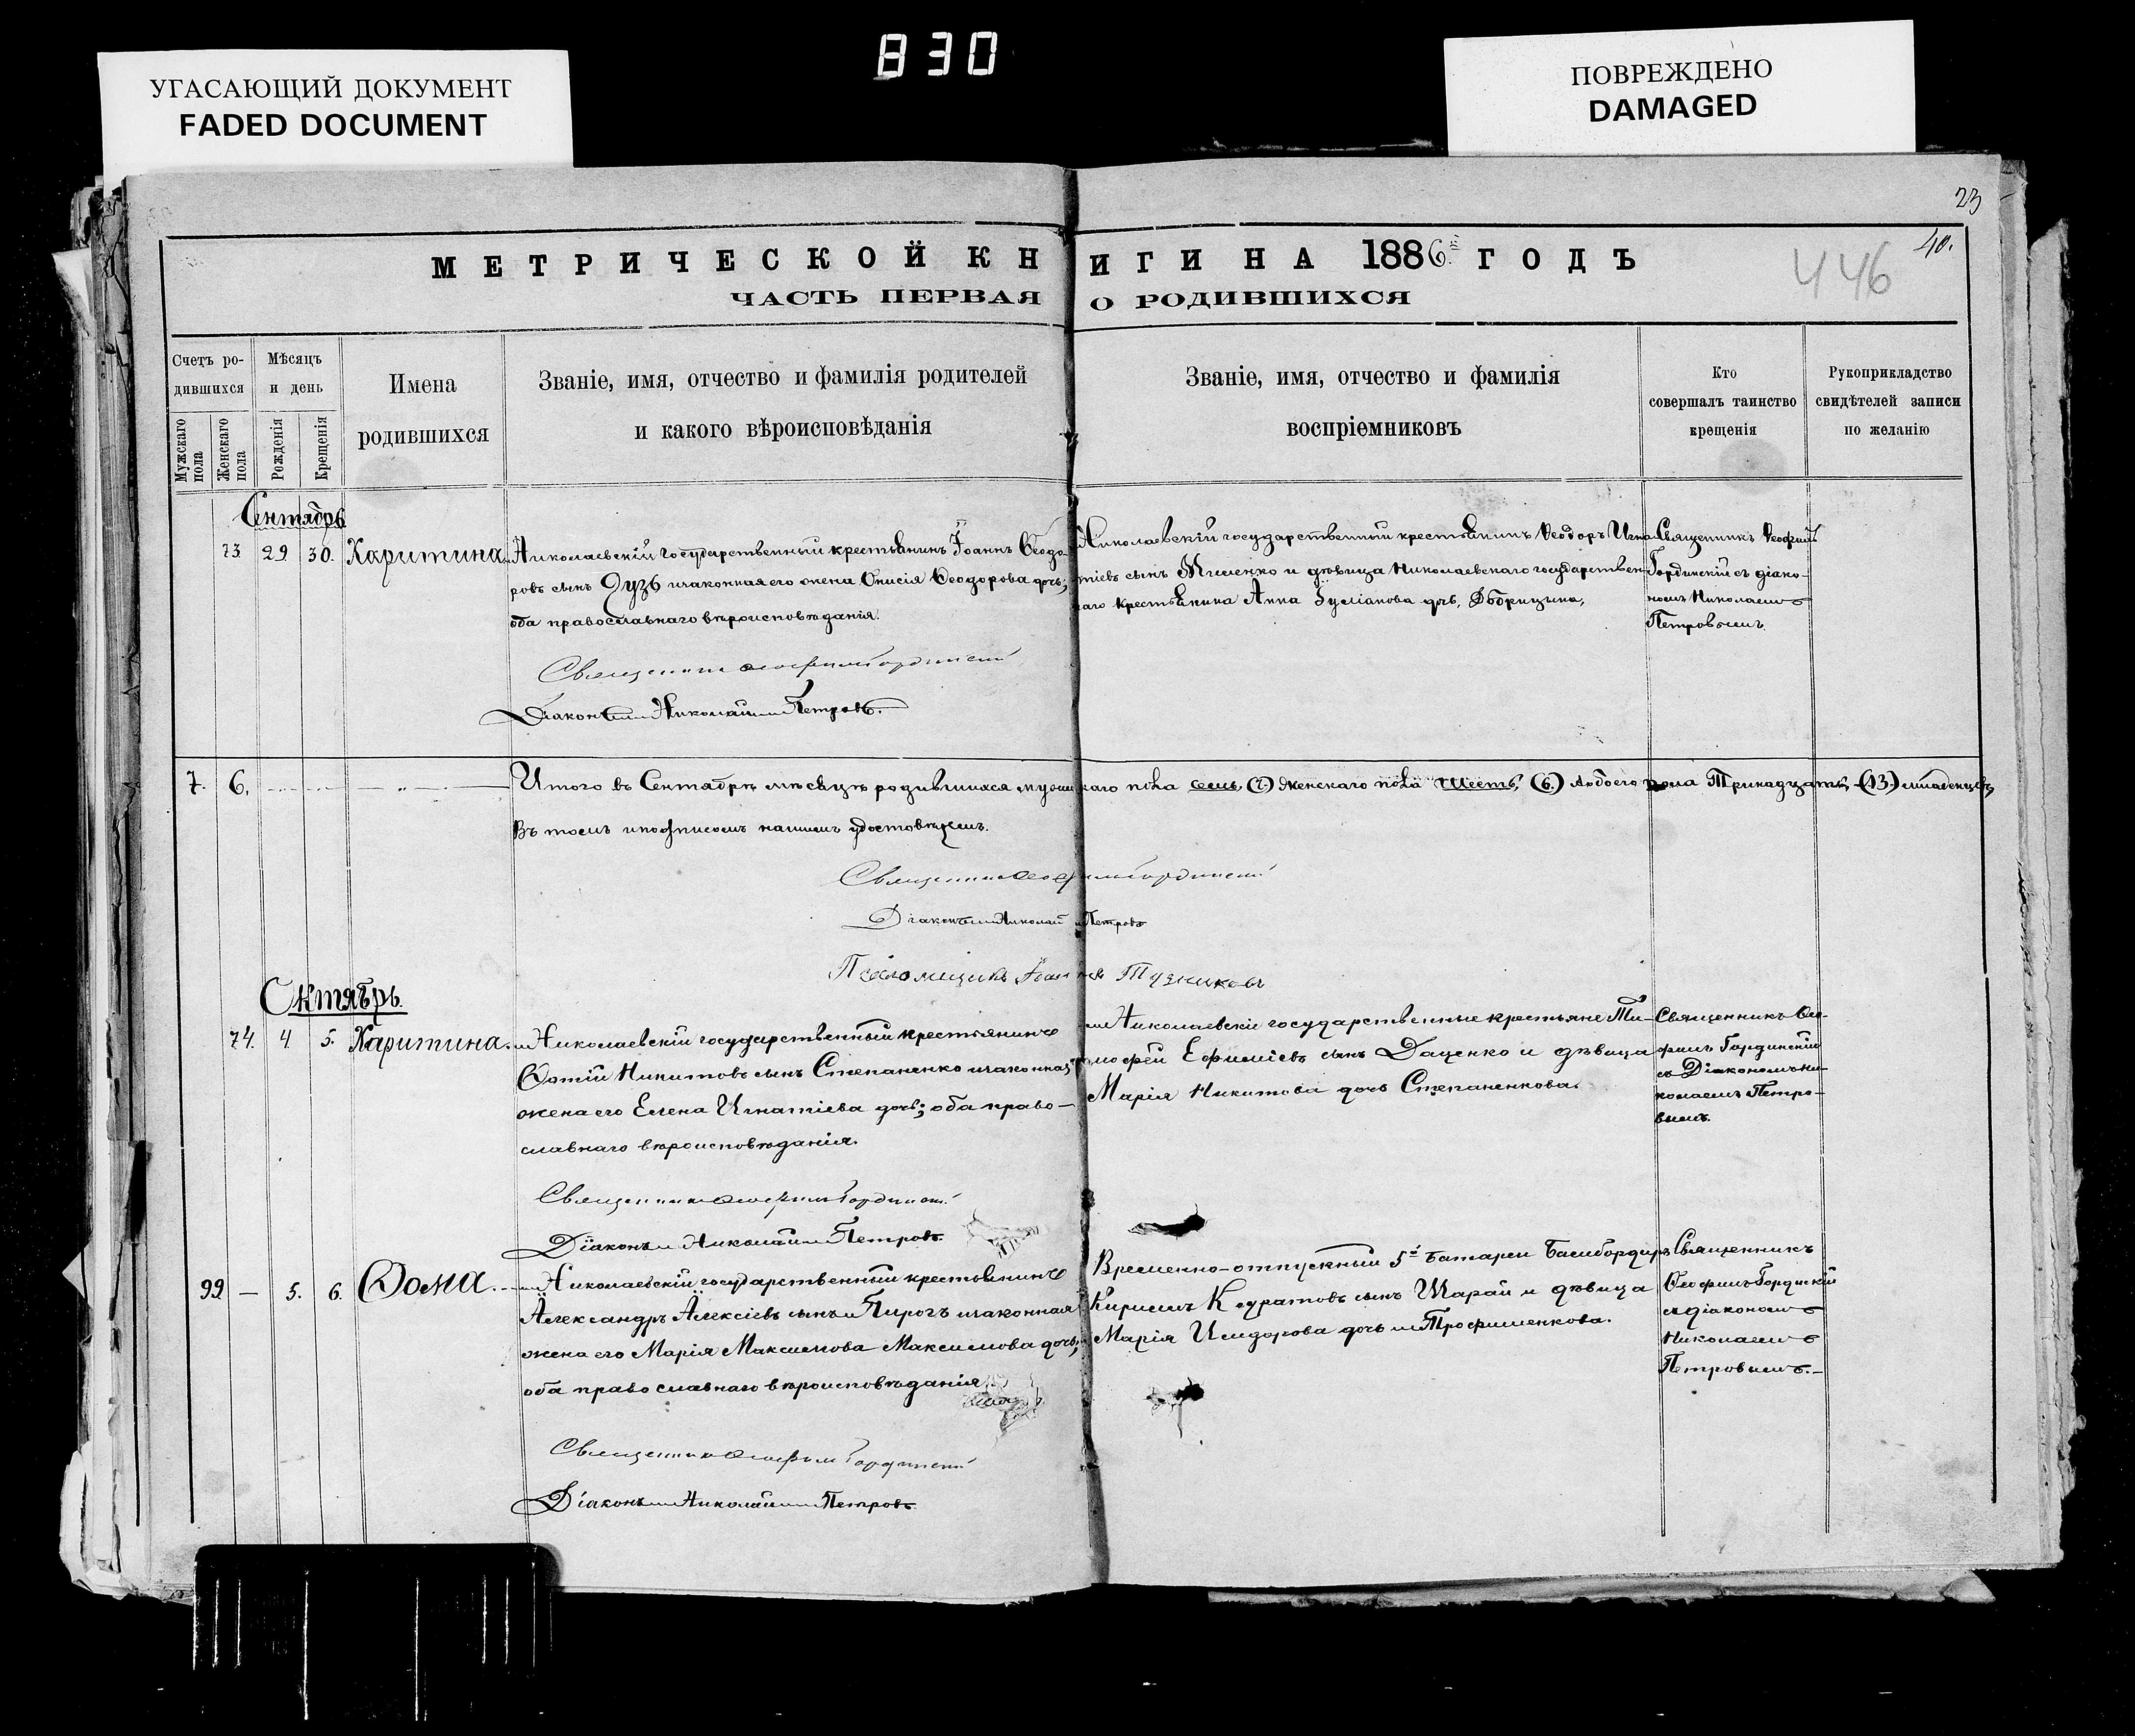 830
УГАСАЮЩИЙ ДОКУМЕНТ
FADED DOCUMENT
ПОВРЕЖДЕНО
DAMAGED
23
40.
446
МЕТРИЧЕСКОЙ КНИГИ НА 1886й ГОДЪ
ЧАСТЬ ПЕРВАЯ О РОДИВШИХСЯ
Счетъ ро-
дившихся
Мужскаго пола
Женскаго пола
Мѣсяцъ
и день
Рожденія
Крещенія
Имена
родившихся
Званіе, имя, отчество и фамилія родителей
и какого вѣроисповѣданія
Званіе, имя, отчество и фамилія
воспріемниковъ
Кто
совершалъ таинство
крещенія
Рукоприкладство
свидѣтелей записи
по желанію
Сентябрь
73. 29. 30. Харитина.
Николаевскій государственный крестьянинъ Іоаннъ Ѳеодо-
ровъ сынъ и законная его жена Онисія Ѳеодорова дочь;
оба православнаго вѣроисповѣданія.
Николаевскій государственный крестьянинъ Ѳеодоръ Игна-
тіевъ сынъ Мищенко и дѣвица Николаевскаго государствен-
наго крестьянина Анна дочь,
Священникъ Ѳеофилъ
Гординскій съ діако-
номъ Николаемъ
Петровымъ
Священникъ Ѳеофилъ Гординскій
Діаконъ Николай Петровъ.
7. 6. Итого въ Сентябрѣ мѣсяцѣ родившихся мужскаго пола семь, (7.) женскаго пола шесть, (6.) обоего пола Тринадцать, (13.) младенцевъ,
Въ томъ и подписомъ нашимъ удостовѣряемъ.
Священникъ Ѳеофилъ Гординскій
Діаконъ Николай Петровъ
Псаломщикъ Іоаннъ
Октябрь.
74. 4. 5. Харитина.
Николаевскій государственный крестьянинъ
Ѳотій Никитовъ сынъ Степаненко и законная
жена его Елена Игнатіева дочь; оба право-
славнаго вѣроисповѣданія.
Николаевскіе государственные крестьяне Ти-
мофей Ефиміевъ сынъ Даценко и дѣвица
Марія Никитова дочь Степаненкова.
Священникъ Ѳео-
филъ Гординскій
съ Діакономъ Ни-
колаемъ Петро-
вымъ.
Священникъ Ѳеофилъ Гординскій
Діаконъ Николай Петровъ
99 — 5. 6. Ѳома.
Николаевскій государственный крестьянинъ
Александръ Алексіевъ сынъ Пирогъ и законная
жена его Марія Максимова Максимова дочь;
оба православнаго вѣроисповѣданія
Временно-отпускный 5й батареи Бомбордиръ
Кириллъ Кодратовъ сынъ Шарай и дѣвица
Марія Исидорова дочь Трофименкова.
Священникъ
Ѳеофилъ Гординскій
съ діакономъ
Николаемъ
Петровымъ.
Священникъ Ѳеофилъ Гординскій
Діаконъ Николай Петровъ